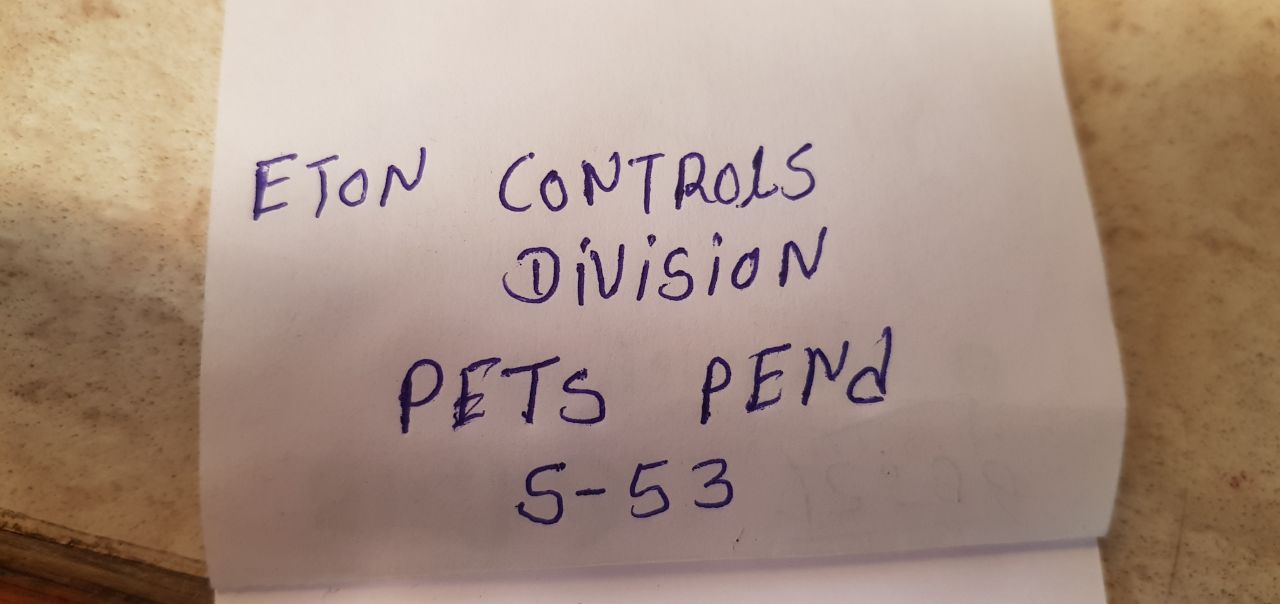 ETON CONTROLS
DIVISION
PETS PEND
S-53